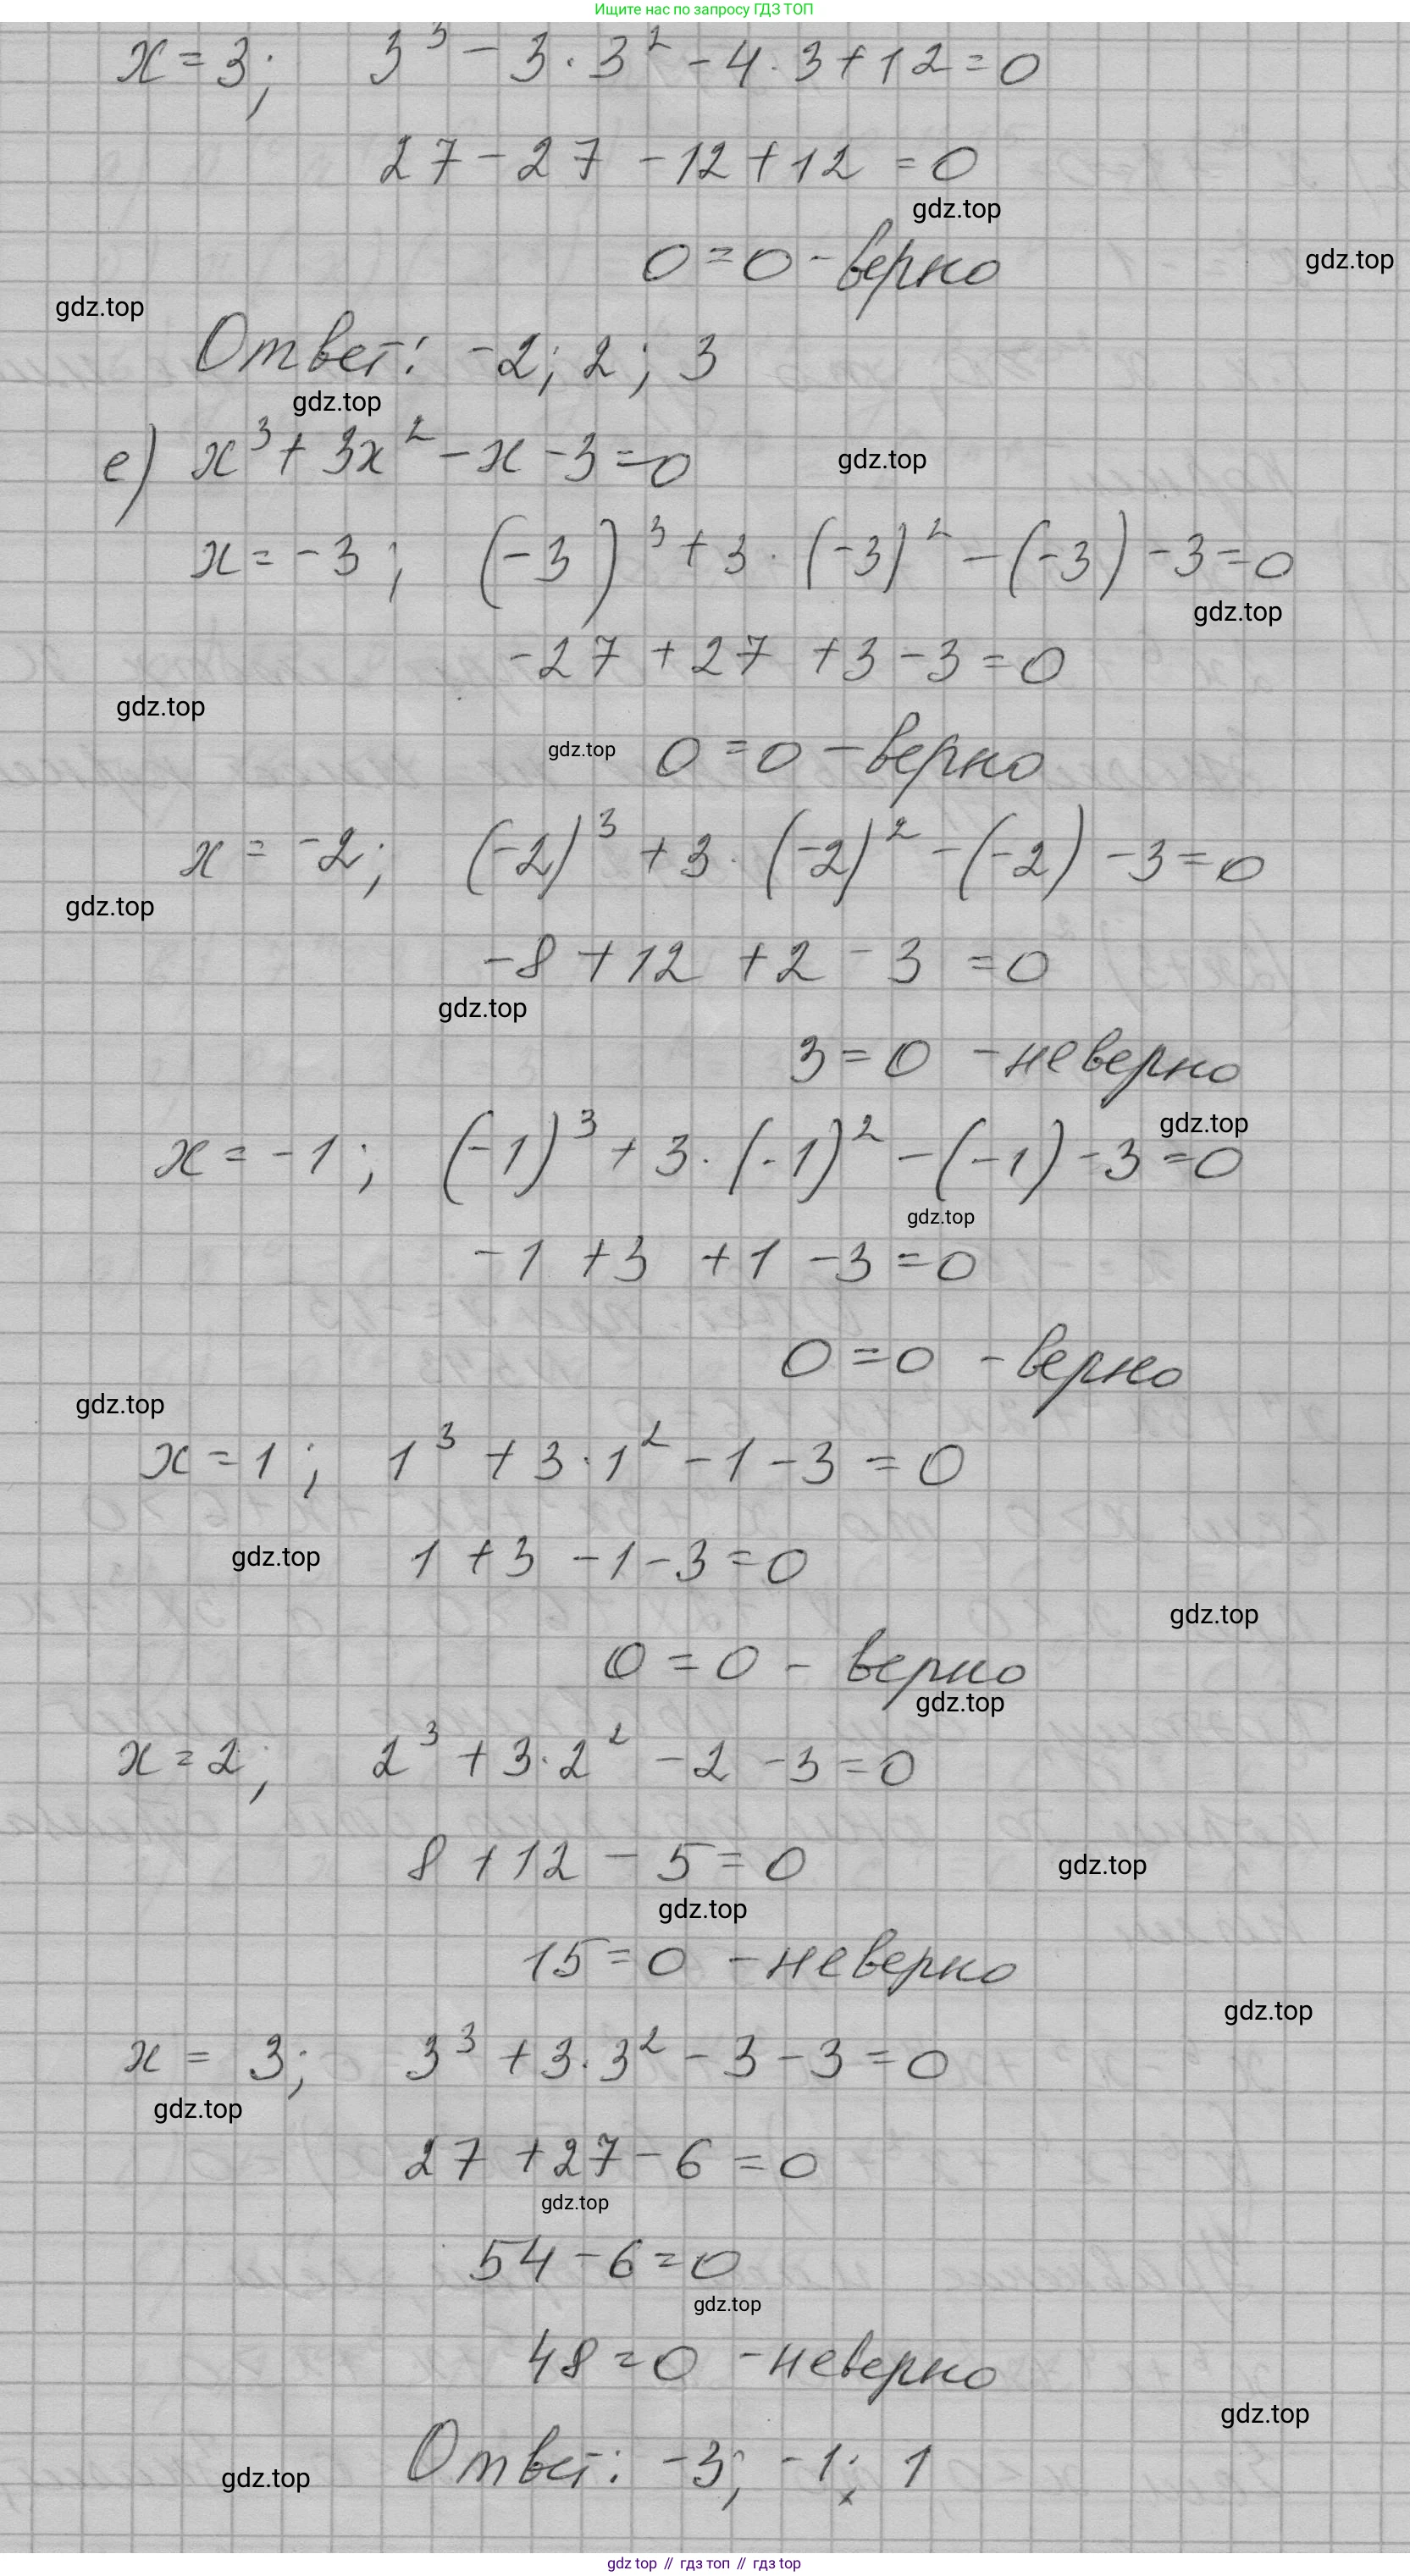 Ищите нас по запросу ГДЗ ТОП
x = 3; 3³ - 3 · 3² - 4 · 3 + 12 = 0
27 - 27 - 12 + 12 = 0
gdz.top
0 = 0 - верно
gdz.top
gdz.top
Ответ: -2; 2; 3
gdz.top
е) x³ + 3x² - x - 3 = 0
gdz.top
x = -3; (-3)³ + 3 · (-3)² - (-3) - 3 = 0
gdz.top
-27 + 27 + 3 - 3 = 0
gdz.top
gdz.top
0 = 0 - верно
x = -2; (-2)³ + 3 · (-2)² - (-2) - 3 = 0
gdz.top
-8 + 12 + 2 - 3 = 0
gdz.top
3 = 0 - неверно
gdz.top
x = -1; (-1)³ + 3 · (-1)² - (-1) - 3 = 0
gdz.top
-1 + 3 + 1 - 3 = 0
0 = 0 - верно
gdz.top
x = 1; 1³ + 3 · 1² - 1 - 3 = 0
gdz.top
1 + 3 - 1 - 3 = 0
gdz.top
0 = 0 - верно
gdz.top
x = 2; 2³ + 3 · 2² - 2 - 3 = 0
8 + 12 - 5 = 0
gdz.top
gdz.top
15 = 0 - неверно
gdz.top
x = 3; 3³ + 3 · 3² - 3 - 3 = 0
gdz.top
27 + 27 - 6 = 0
gdz.top
54 - 6 = 0
gdz.top
48 = 0 - неверно
gdz.top
Ответ: -3; -1; 1
gdz.top
gdz top // гдз топ // гдз top